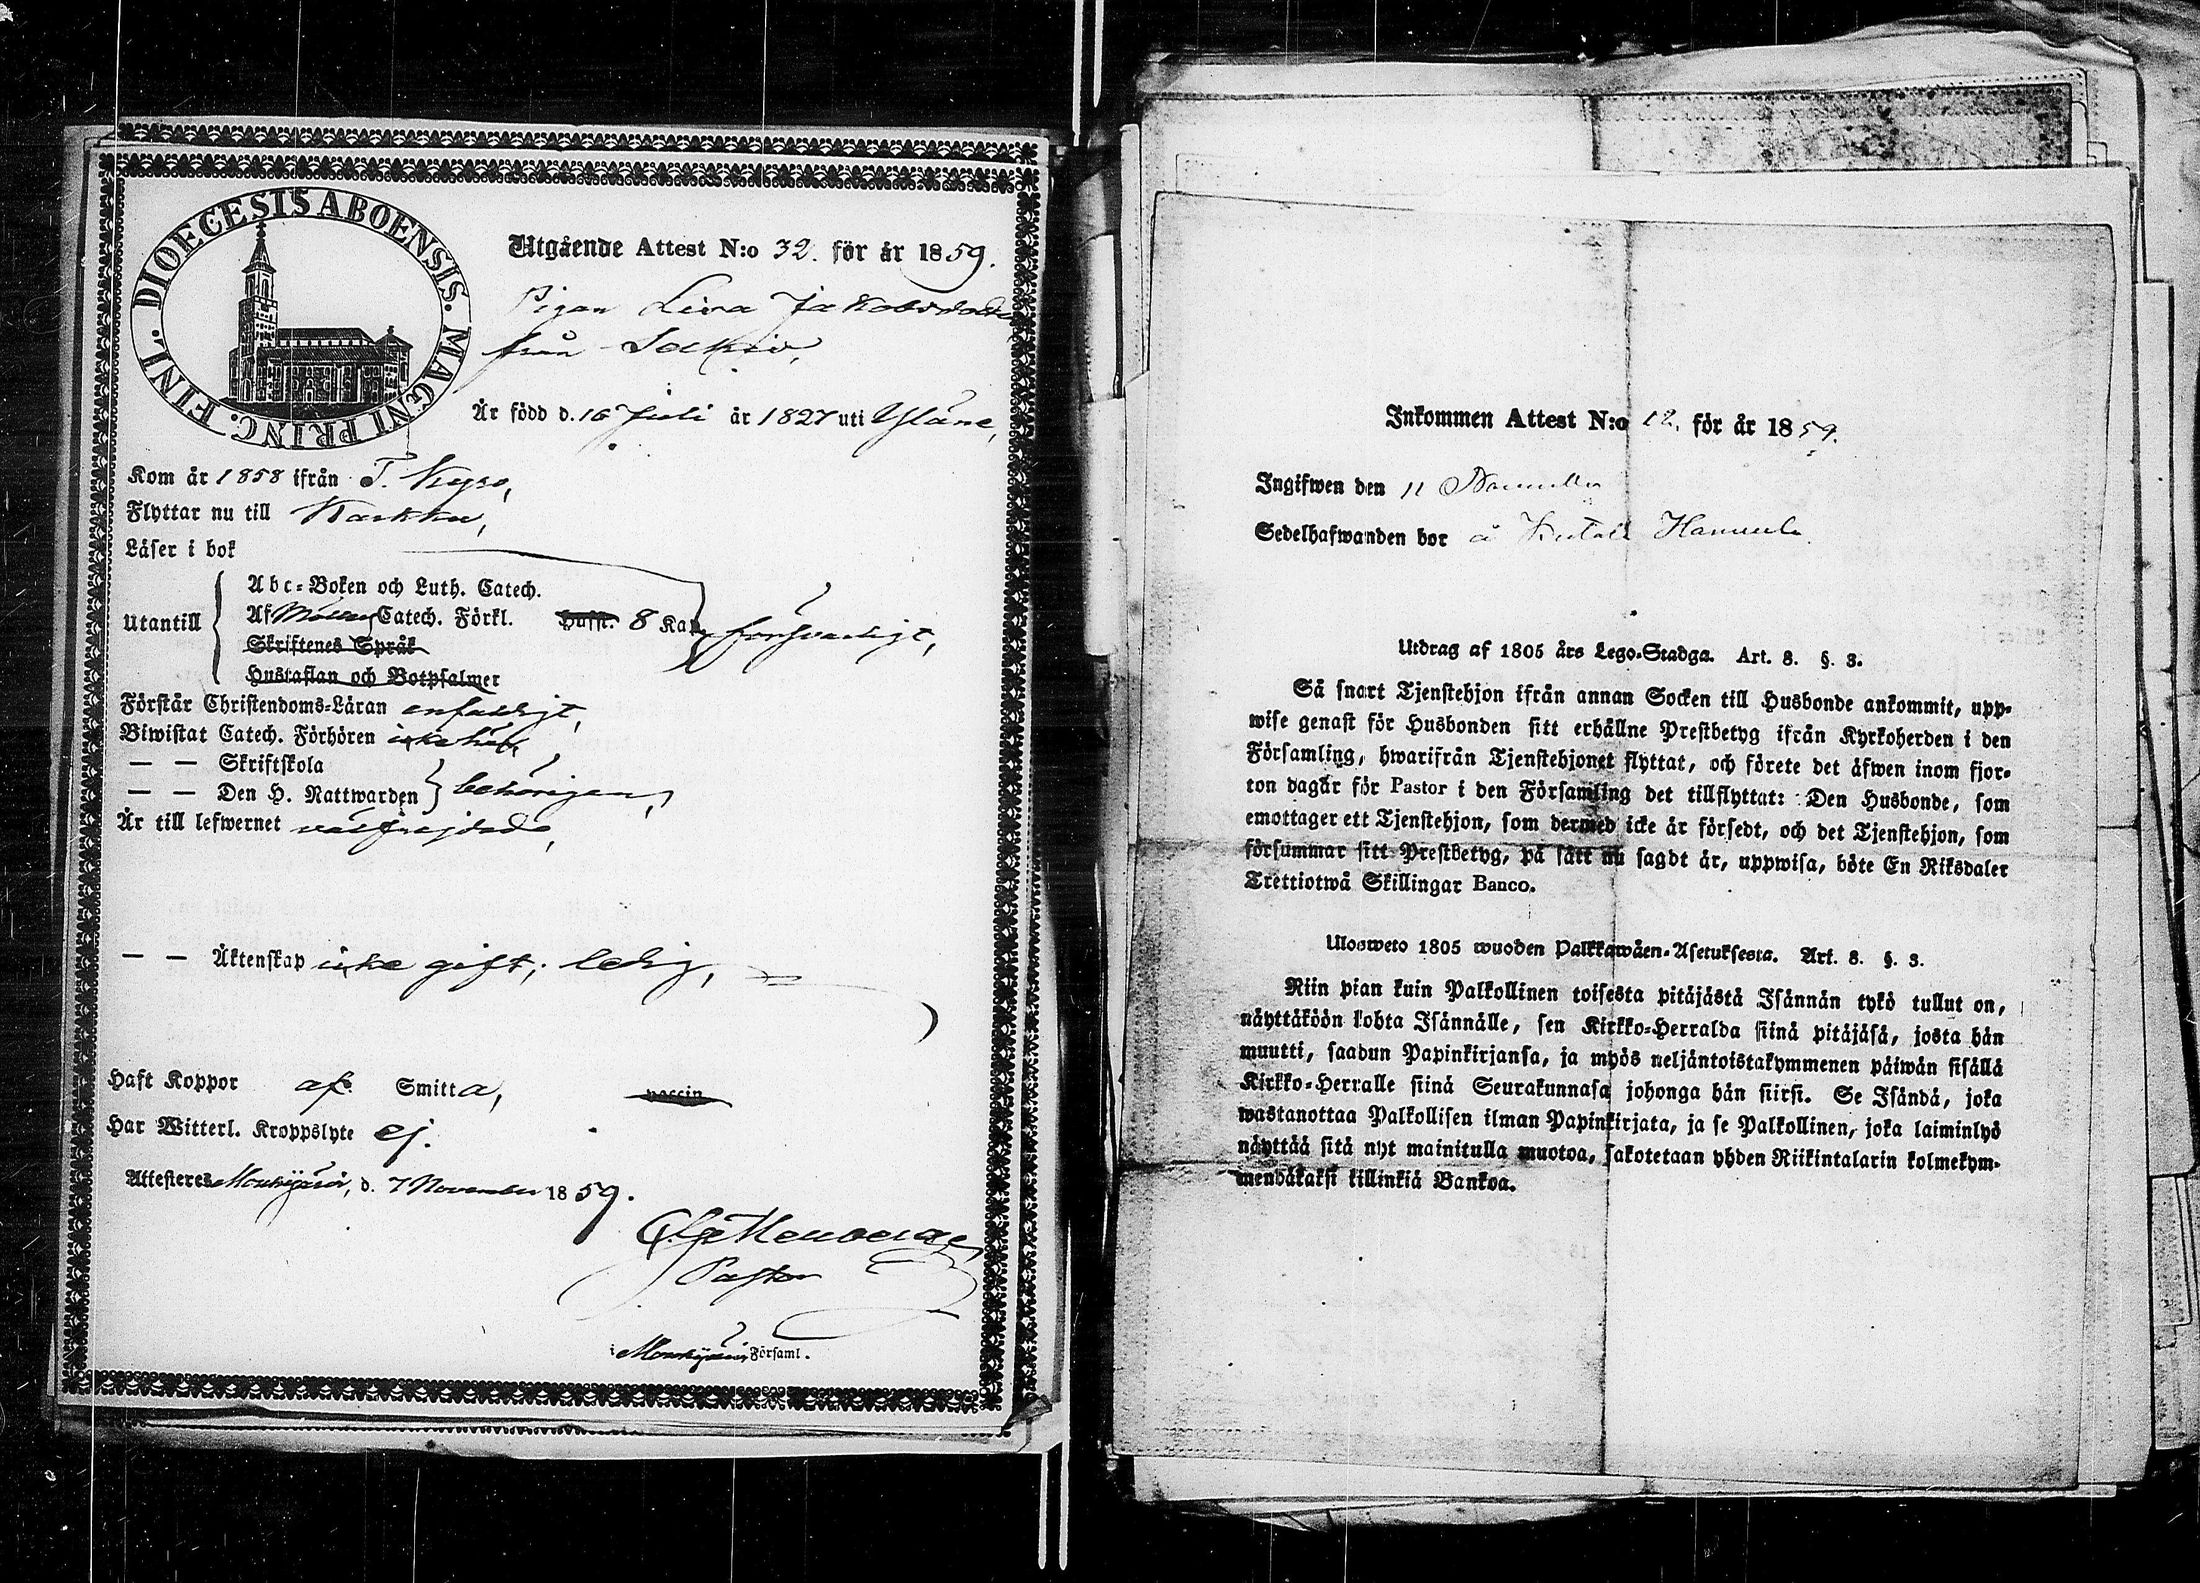 DIOECESIS ABOENSIS. MAGNI PRINC. FINL.
Utgående Attest N:o 32. för år 1859.
Pigan Lena Jakobsdotter
från Saksio,
Är född d. 16 Juli år 1827 uti Yläne,
Kom år 1858 ifrån T. Kyro,
Flyttar nu till Karkku,
Läser i bok
Utantill
Abc-Boken och Luth. Catech.
Af Möllers Catech. Förkl. Hufst. 8 Kap.
försvarligt,
Skriftenes Språk
Hustaflan och Botpsalmer
Förstår Christendoms-Läran enfaldigt,
Biwistat Catech. Förhören icke här,
— — Skriftskola
— — Den H. Nattwarden behörigen,
Är till lefwernet välfrejdade,
— — Äktenskap icke gift; ledig,
Haft Koppor af Smitta, vaccin
Har Witterl. Kroppslyte ej.
Attesteres Mouhijärvi, d. 7 November 1859.
Pastor
i Mouhijärvi Församl.
Inkommen Attest N:o 12. för år 1859.
Ingifwen den 11 November
Sedelhafwanden bor å
Utdrag af 1805 års Lego-Stadga. Art. 8. §. 3.
Så snart Tjenstehjon ifrån annan Socken till Husbonde ankommit, upp-
wise genast för Husbonden sitt erhållne Prestbetyg ifrån Kyrkoherden i den
Församling, hwarifrån Tjenstehjonet flyttat, och förete det äfwen inom fjor-
ton dagar för Pastor i den Församling det tillflyttat: Den Husbonde, som
emottager ett Tjenstehjon, som dermed icke är försedt, och det Tjenstehjon, som
försummar sitt Prestbetyg, på sätt nu sagdt är, uppwisa, böte En Riksdaler
Trettiotwå Skillingar Banco.
Ulosweto 1805 wuoden Palkkawäen-Asetuksesta. Art. 8. §. 3.
Niin pian kuin Palkollinen toisesta pitäjästä Isännän tykö tullut on,
näyttäköön kohta Isännälle, sen Kirkko-Herralda siinä pitäjäsä, josta hän
muutti, saadun Papinkirjansa, ja myös neljäntoistakymmenen päiwän sisällä
Kirkko-Herralle siinä Seurakunnasa johonga hän siirsi. Se Isändä, joka
wastanottaa Palkollisen ilman Papinkirjata, ja se Palkollinen, joka laiminlyö
näyttää sitä nyt mainitulla muotoa, sakotetaan yhden Riikintalarin kolmekym-
mendäkaksi killinkiä Bankoa.